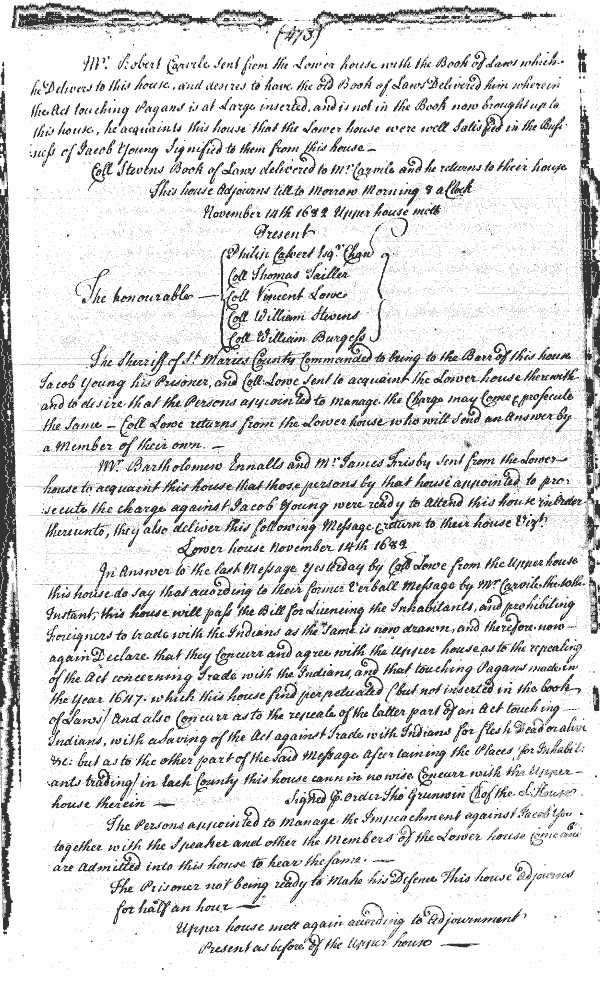 (473)
Mr. Robert Carvile sent from the Lower house with the Book of Laws which
he Delivers to this house, and desires to have the old Book of Laws Delivered him wherein
the Act touching Pagans is at Large inserted, and is not in the Book now brought up to
this house, he acquaints this house that the Lower house were well Satisfied in the Busi
ness of Jacob Young Signified to them from this house —
Coll Stevens Book of Laws delivered to Mr. Carvile and he returns to their house
This house Adjourns till to Morrow Morning 8 a Clock
November 14th 1682 Upper house mett
Present
The honourable —
Philip Calvert Esqr. Chan
Coll Thomas Tailler
Coll Vincent Lowe
Coll William Stevens
Coll William Burgess
The Sherriff of St. Maries County Commanded to bring to the Barr of this house
Jacob Young his Prisoner, and Coll Lowe sent to acquaint the Lower house therewith
and to desire that the Persons appointed to manage the Charge may Come & prosecute
the Same — Coll Lowe returns from the Lower house who will send an Answer by
a Member of their own. —
Mr. Bartholomew Ennalls and Mr. James Frisby sent from the Lower
house to acquaint this house that those persons by that house appointed to pro:
secute the charge against Jacob Young were ready to Attend this house in Order
thereunto, they also deliver this following Message & return to their house Vizt.
Lower house November 14th 1682
In Answer to the last Message Yesterday by Coll Lowe from the Upper house
this house do say that according to their former Verball Message by Mr. Carvile the
Instant, this house will pass the Bill for Licencing the Inhabitants, and prohibiting
Foreigners to trade with the Indians as the Same is now drawn, and therefore now
again Declare that they Concurr and agree with the Upper house as to the repealing
of the Act concerning Trade with the Indians, and that touching Pagans made in
the Year 1647. which this house find perpetuated (but not inserted in the book
of Laws) And also Concurr as to the repeale of the latter part of an Act touching
Indians, with a Saving of the Act against Trade with Indians for flesh Dead or alive
&c: but as to the other part of the Said Message Ascertaining the Places (for Inhabit:
ants trading) in Each County this house cann in no wise Concurr with the Upper
house therein — Signed p Order Tho Grunwin Cl of the L. House
The Persons appointed to Manage the Impeachment against Jacob You
together with the Speaker and other the Members of the Lower house Come and
are Admitted into this house to hear the same. —
The Prisoner not being ready to Make his Defence This house Adjourns
for half an hour —
Upper house mett again according to Adjournment
Present as before of the Upper house —